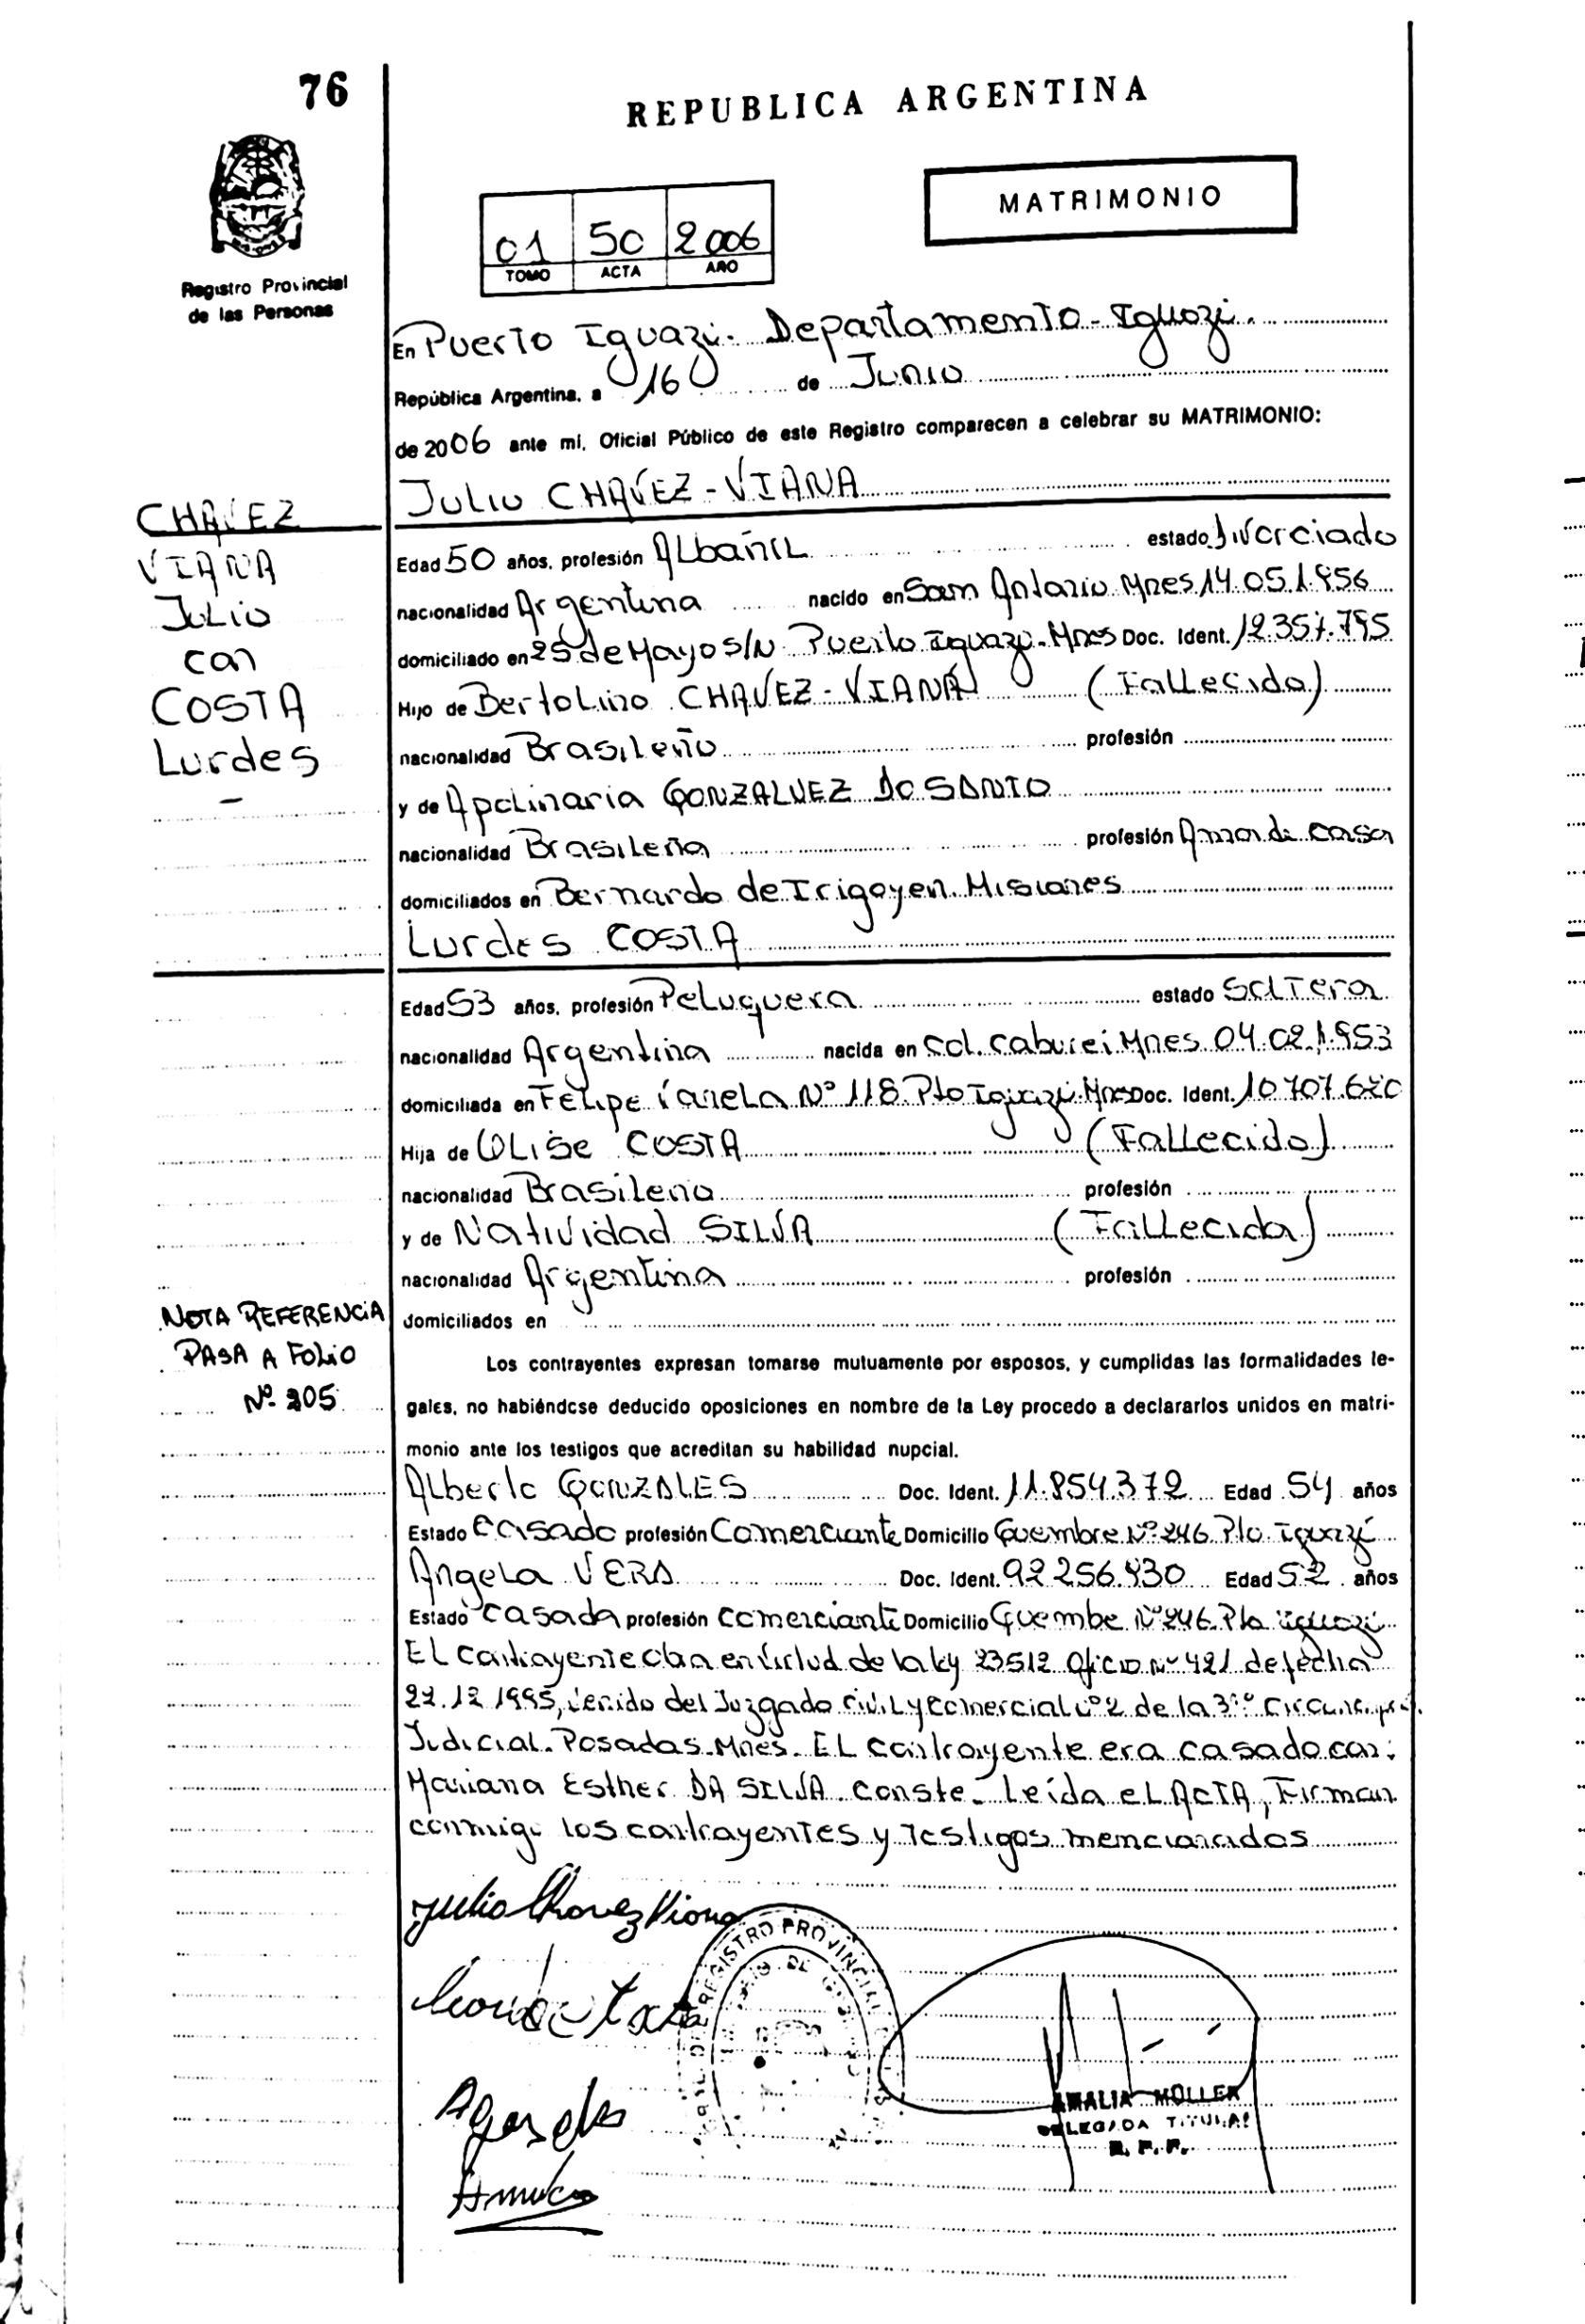 76
REPUBLICA ARGENTINA
MATRIMONIO
01 50 2006
TOMO ACTA AÑO
Registro Provincial
de las Personas
En Puerto Iguazú. Departamento-Iguazú.
República Argentina, a 16 de Junio
de 2006 ante mi, Oficial Público de este Registro comparecen a celebrar su MATRIMONIO:
Julio CHAVEZ-VIANA
CHAVEZ
VIANA
Julio
con
COSTA
Lurdes
Edad 50 años, profesión Albañil estado Divorciado
nacionalidad Argentina nacido en San Antonio Mnes 14.05.1.956
domiciliado en 25 de Mayo s/N Puerto Iguazú-Mnes Doc. Ident. 12.357.795
Hijo de Bertolino CHAVEZ-VIANA (Fallecido)
nacionalidad Brasileño profesión
y de Apolinaria GONZALVEZ DO SANTO
nacionalidad Brasileña profesión Ama de casa
domiciliados en Bernardo de Irigoyen Misiones
Lurdes COSTA
Edad 53 años, profesión Peluquera estado Soltera
nacionalidad Argentina nacida en Col. Caburei Mnes 04.02.1.953
domiciliada en Felipe Varela Nº 118 Pto Iguazú-Mnes Doc. Ident. 10.707.620
Hija de COSTA (Fallecido)
nacionalidad Brasileño profesión
y de Natividad SILVA (Fallecida)
nacionalidad Argentina profesión
domiciliados en
NOTA REFERENCIA
PASA A FOLIO
Nº 205
Los contrayentes expresan tomarse mutuamente por esposos, y cumplidas las formalidades le-
gales, no habiéndose deducido oposiciones en nombre de la Ley procedo a declararlos unidos en matri-
monio ante los testigos que acreditan su habilidad nupcial.
Alberto GONZALES Doc. Ident. 11.854.372 Edad 54 años
Estado Casado profesión Comerciante Domicilio Guembre Nº 246 Pto. Iguazú
Angela VERA Doc. Ident. 92.256.930 Edad 52 años
Estado Casada profesión Comerciante Domicilio Guembe Nº 246 Pto Iguazú
El Contrayente obra en virtud de la ley 23512 Oficio Nº 421 de fecha
22.12.1995, venido del Juzgado Civil y Comercial Nº 2 de la 3º
Judicial. Posadas-Mnes. El Contrayente era casado con:
Mariana Esther DA SILVA. Conste. Leída el ACTA, Firman
conmigo los contrayentes y Testigos mencionados
Julio Chavez Viana
REGISTRO PROVINCIAL
AMALIA MOLLER
DELEGADA TITULAR
R. P. P.